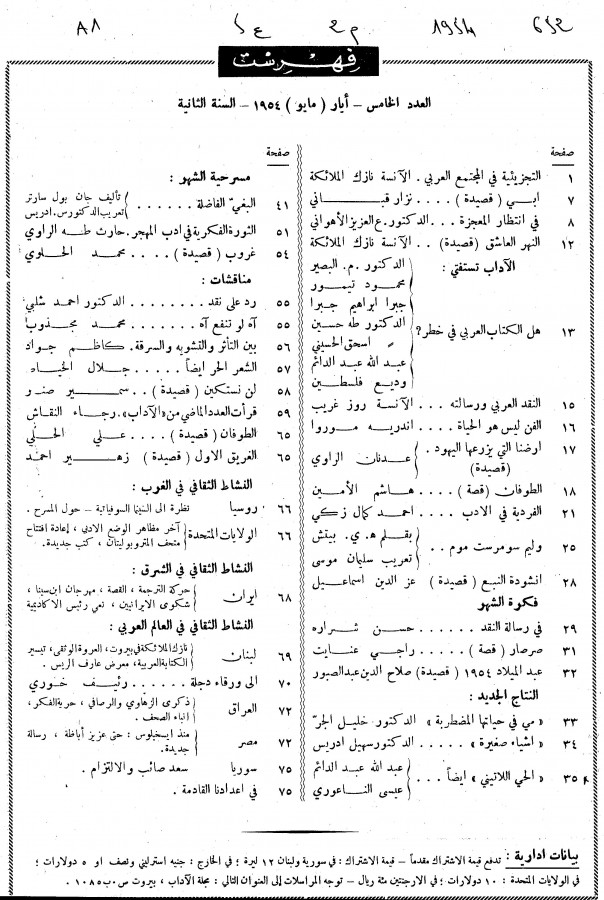 A1 ع 5 م 2 1954 652
فهرست
العدد الخامس - أيار ( مايو ) ١٩٥٤ - السنة الثانية
صفحة
١ التجزيئية في المجتمع العربي . الآنسة نازك الملائكة
٧ ابي ( قصيدة ) . . . . نزار قباني
٨ في انتظار المعجزة . . . الدكتور ع. العزيز الأهواني
١٢ النهر العاشق ( قصيدة ) . . الآنسة نازك الملائكة
الآداب تستفتي :
١٣ هل الكتاب العربي في خطر ؟
الدكتور م. البصير
محمود تيمور
جبرا ابراهيم جبرا
الدكتور طه حسين
» اسحق الحسيني
عبد الله عبد الدائم
وديع فلسطين
١٥ النقد العربي ورسالته . . . الآنسة روز غريب
١٦ الفن ليس هو الحياة . . . . اندريه موروا
١٧ ارضنا التي يزرعها اليهود . . عدنان الراوي
(قصيدة)
١٨ الطوفان ( قصة ) . . . . هاشم الأمين
٢١ الفردية في الادب . . . احمد كمال زكي
٢٥ وليم سومرست موم . .
بقلم ه. ي. بيتش
تعريب سليمان موسى
٢٨ انشودة النبع ( قصيدة ) عز الدين اسماعيل
فكرة الشهر
٢٩ في رسالة النقد . . . . . حسن شراره
٣١ صرصار ( قصة ) . . . . راجي عنايت
٣٢ عبد الميلاد ١٩٥٤ ( قصيدة ) صلاح الدين عبدالصبور
النتاج الجديد :
٣٣ « مي في حياتها المضطربة » الدكتور خليل الجرّ
٣٤ « اشياء صغيرة » . . . . . الدكتور سهيل ادريس
٣٥ « الحي اللاتيني » ايضاً . . .
عبد الله عبد الدائم
عيسى الناعوري
صفحة
مسرحية الشهر :
٤١ البغيّ الفاضلة . . . . . .
تأليف جان بول سارتر
تعريب الدكتور س. ادريس
٥١ الثورة الفكرية في ادب المهجر . حارث طه الراوي
٥٤ غروب ( قصيدة ) . . . . محمد الحلوي
مناقشات :
٥٥ رد على نقد . . . . . . . الدكتور احمد شلبي
٥٥ آه لو تنفع آه . . . . . . محمد مجذوب
٥٦ بين التأثر والتشويه والسرقة . كاظم جواد
٥٧ الشعر الحر ايضاً . . . . . جلال الخياط
٥٨ لن نستكين ( قصيدة ) . . سمير صنبر
٥٩ قرأت العدد الماضي من «الآداب» . رجاء النقاش
٦٥ الطوفان ( قصيدة ) . . . . علي الحلي
٦٥ الغريق الاول ( قصيدة ) زهير احمد
النشاط الثقافي في الغرب :
٦٦ روسيا نظرة الى السينما السوفياتية - حول المسرح .
٦٦ الولايات المتحدة
آخر مظاهر الوضع الادبي ، إعادة افتتاح
متحف المتروبوليتان ، كتب جديدة .
النشاط الثقافي في الشرق :
٦٨ ايران
حركة الترجمة ، القصة ، مهرجان ابن سينا ،
شكوى الايرانيين ، نعي رئيس الاكاديمية
النشاط الثقافي في العالم العربي :
٦٩ لبنان
نازك الملائكة في بيروت ، العروة الوثقى ، تيسير
الكتابة العربية ، معرض عارف الريس .
٧٠ الى ورقاء دجلة . . . . . . رئيف خوري
٧٢ العراق
ذكرى الزهاوي والرصافي ، حرية الفكر ،
انباء الصحف .
٧٢ مصر
منذ ايسخيلوس : حتى عزيز أباظة ، رسالة
جديدة .
٧٥ سوريا سعد صائب والالتزام .
٧٥ في اعدادنا القادمة .
بيانات ادارية : تدفع قيمة الاشتراك مقدماً - قيمة الاشتراك : في سورية ولبنان ١٢ ليرة ؛ في الخارج : جنيه استرليني ونصف او ٥ دولارات ؛
في الولايات المتحدة : ١٠ دولارات ؛ في الارجنتين مئة ريال - توجه المراسلات إلى العنوان التالي : مجلة الآداب ، بيروت ص.ب ١٠٨٥ .